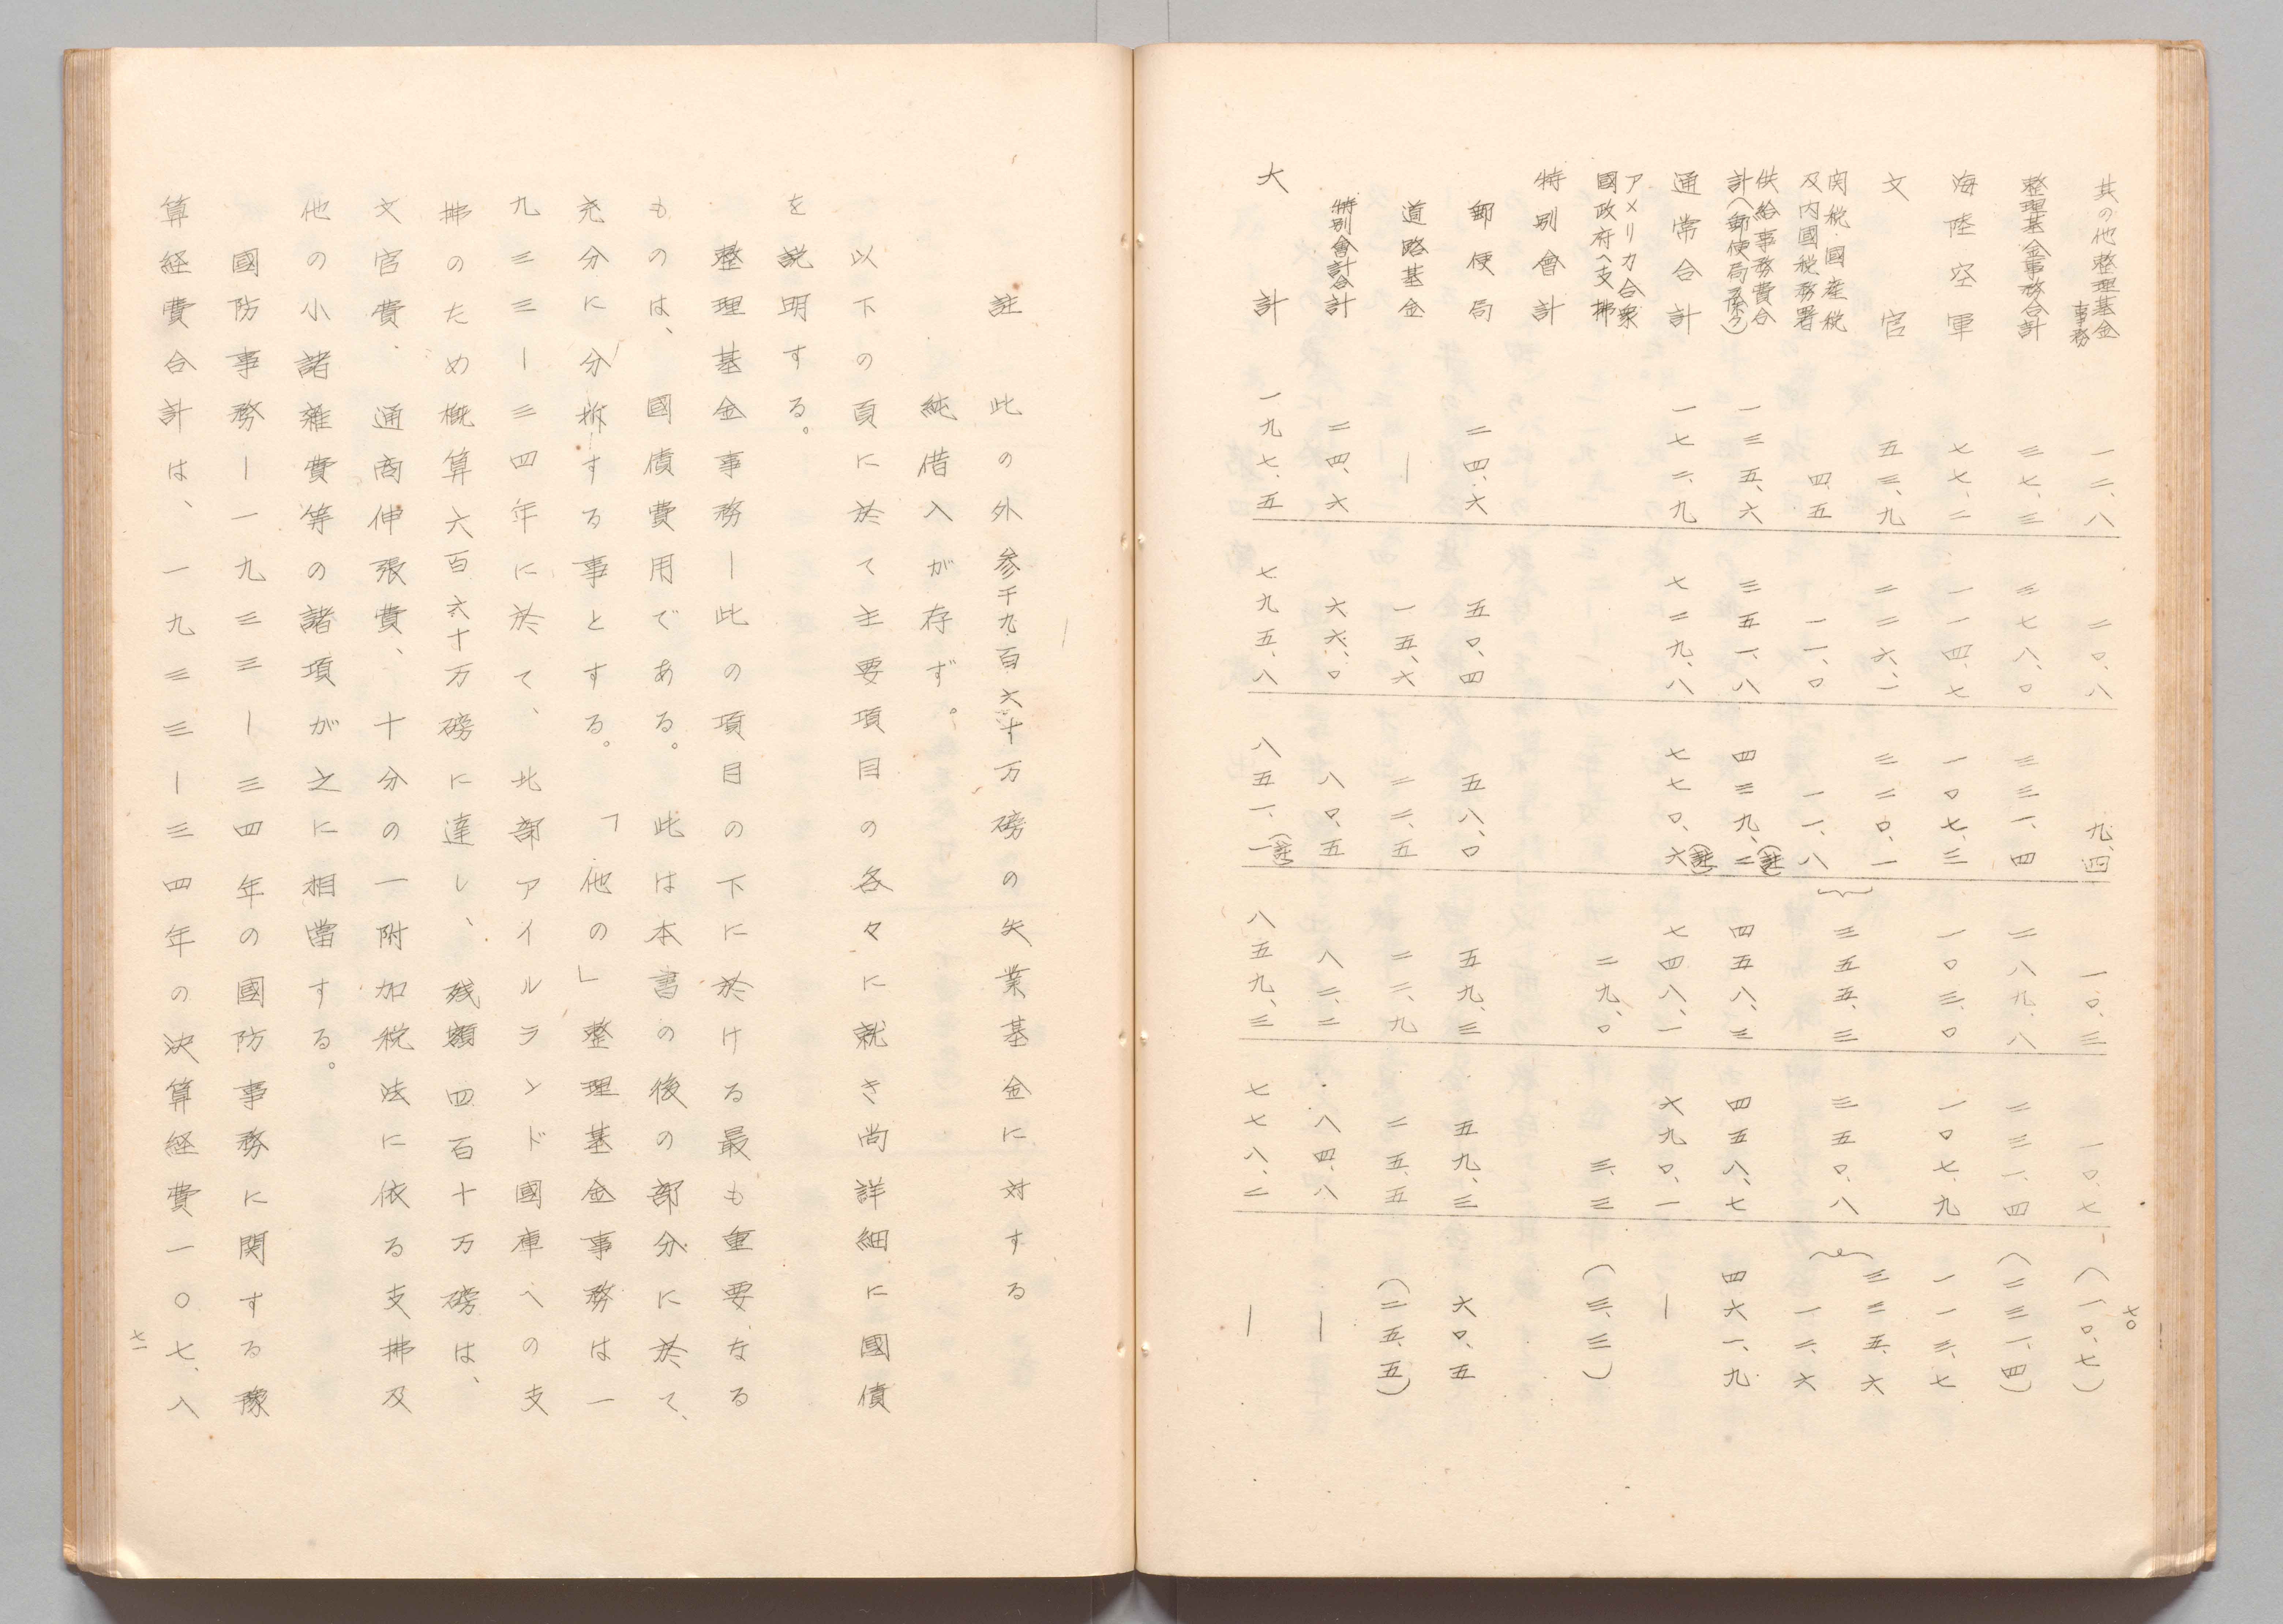 七〇
其の他整理基金事務 一二、八 二〇、八 九、四 一〇、三 一〇、七 (一〇、七)
整理基金事務合計 三七、三 三七八、〇 三三一、四 二八九、八 二三一、四 (二三一、四)
海陸空軍 七七、二 一一四、七 一〇七、三 一〇三、〇 一〇七、九 一一三、七
文官 五三、九 二二六、一 三二〇、一 三五五、三 三五〇、八 三三五、六
関税・國産税及内國税務署 四、五 一一、〇 一一、八 一二、六
供給事務費合計(郵便局ヲ除ク) 一三五、六 三五一、八 四三九、二(註) 四五八、三 四五八、七 四六一、九
通常合計 一七二、九 七二九、八 七七〇、六(註) 七四八、一 六九〇、一 ー
アメリカ合衆國政府ヘ支拂 二九、〇 三、三 (三、三)
特別會計
郵便局 二四、六 五〇、四 五八、〇 五九、三 五九、三 六〇、五
道路基金 ー 一五、六 二二、五 二二、九 二五、五 (二五、五)
特別會計合計 二四、六 六六、〇 八〇、五 八二、二 八四、八 ー
大計 一九七、五 七九五、八 八五一、一(註) 八五九、三 七七八、二 ー
註 此の外参千九百六十万磅の失業基金に対する
純借入が存ず。
以下の頁に於て主要項目の各々に就き尚詳細に國債
を説明する。
整理基金事務ー此の項目の下に於ける最も重要なる
ものは、國債費用である。此は本書の後の部分に於て、
充分に分拆する事とする。「他の」整理基金事務は一
九三三ー三四年に於て、北部アイルランド國庫への支
拂のため概算六百六十万磅に達し、残額四百十万磅は、
文官費、通商伸張費、十分の一附加税法に依る支拂及
他の小諸雑費等の諸項が之に相當する。
國防事務ー一九三三ー三四年の國防事務に関する豫
算経費合計は、一九三三ー三四年の決算経費一〇七、八
七一